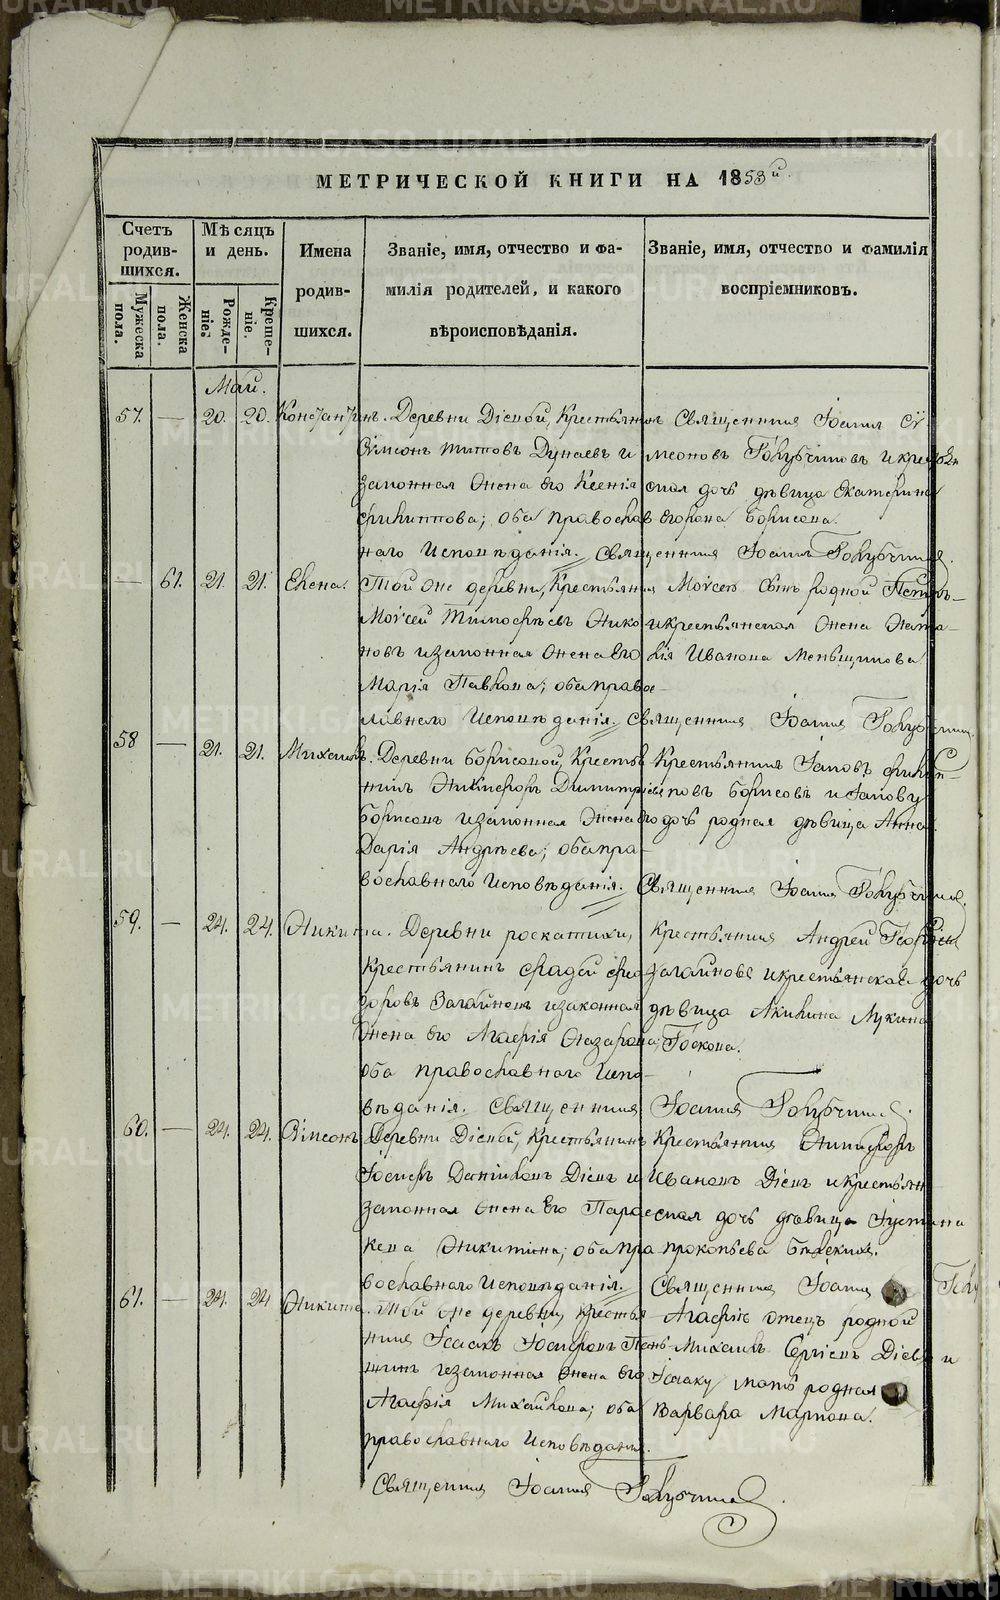 МЕТРИЧЕСКОЙ КНИГИ НА 1853й
Счетъ родив-шихся.
Мѣсяцъ и день.
Имена родив-шихся.
Званіе, имя, отчество и фа-
милія родителей, и какого
вѣроисповѣданія.
Званіе, имя, отчество и фамилія
воспріемниковъ.
Мужеска пола.
Женска пола.
Рожде-ніе.
Креще-ніе.
Май.
57. — 20. 20. Константинъ. Деревни Діевой, Крестьянинъ
Сѵмеонъ Титовъ Дунаевъ и
законная жена его Ксенія
Филиппова; оба православ
наго исповѣданія.
Священника Іоанна Сѵ
меоновъ Голубчиковъ и крестьян
ская дочь дѣвица Екатерина
Егорова Борисова.
Священникъ Іоаннъ Голубчиков
— 61. 21. 21. Елена. Той же деревни, Крестьянинъ
Моѵсей Тимофѣевъ Нико
новъ и законная жена его
Марія Павлова; оба право
славнаго исповѣданія.
Моѵсею сынъ родной Петръ
и крестьянская жена Ната-
лія Иванова Меньщикова.
Священникъ Іоаннъ Голубчиков
58 — 21. 21. Михаилъ. Деревни Борисовой, Крестья
нинъ Никифоръ Димитріевъ
Борисовъ и законная жена его
Дарія Андрѣева; оба пра-
вославнаго исповѣданія.
Крестьянинъ Іаковъ Филип-
повъ Борисовъ и Іакову
дочь родная дѣвица Анна.
Священникъ Іоаннъ Голубчиков.
59. — 24. 24. Никита. Деревни Роскатихи,
Крестьянинъ Фадей Фео
доровъ Загайновъ и законная
жена его Агафія Назарова;
оба православнаго испо-
вѣданія.
Крестьянинъ Андрей Георгіевъ
Загайновъ и крестьянская дочь
дѣвица Акилина Лукина
Іоскова.
Священникъ Іоаннъ Голубчиков.
60. — 24. 24. Сѵмеонъ. Деревни Діевой, Крестьянинъ
Іосифъ Даніиловъ Діевъ и
законная жена его Парас
кева Никитина; оба пра
вославнаго исповѣданія.
Крестьянинъ Никифоръ
Ивановъ Діевъ и крестьян
ская дочь дѣвица Іустина
Прокопьева
Священникъ Іоаннъ Голу
61. — 24. 24 Никита. Той же деревни, Крестья
нинъ Ісаакъ Іосифовъ
и законная жена его
Агафія Михайлова; оба
православнаго исповѣданія.
Агафіи отецъ родной
Михаилъ Сергіевъ Діевъ и
Ісааку мать родная
Варвара Маркова.
Священникъ Іоаннъ Голубчиков.
METRIKI.GASO-URAL.RU